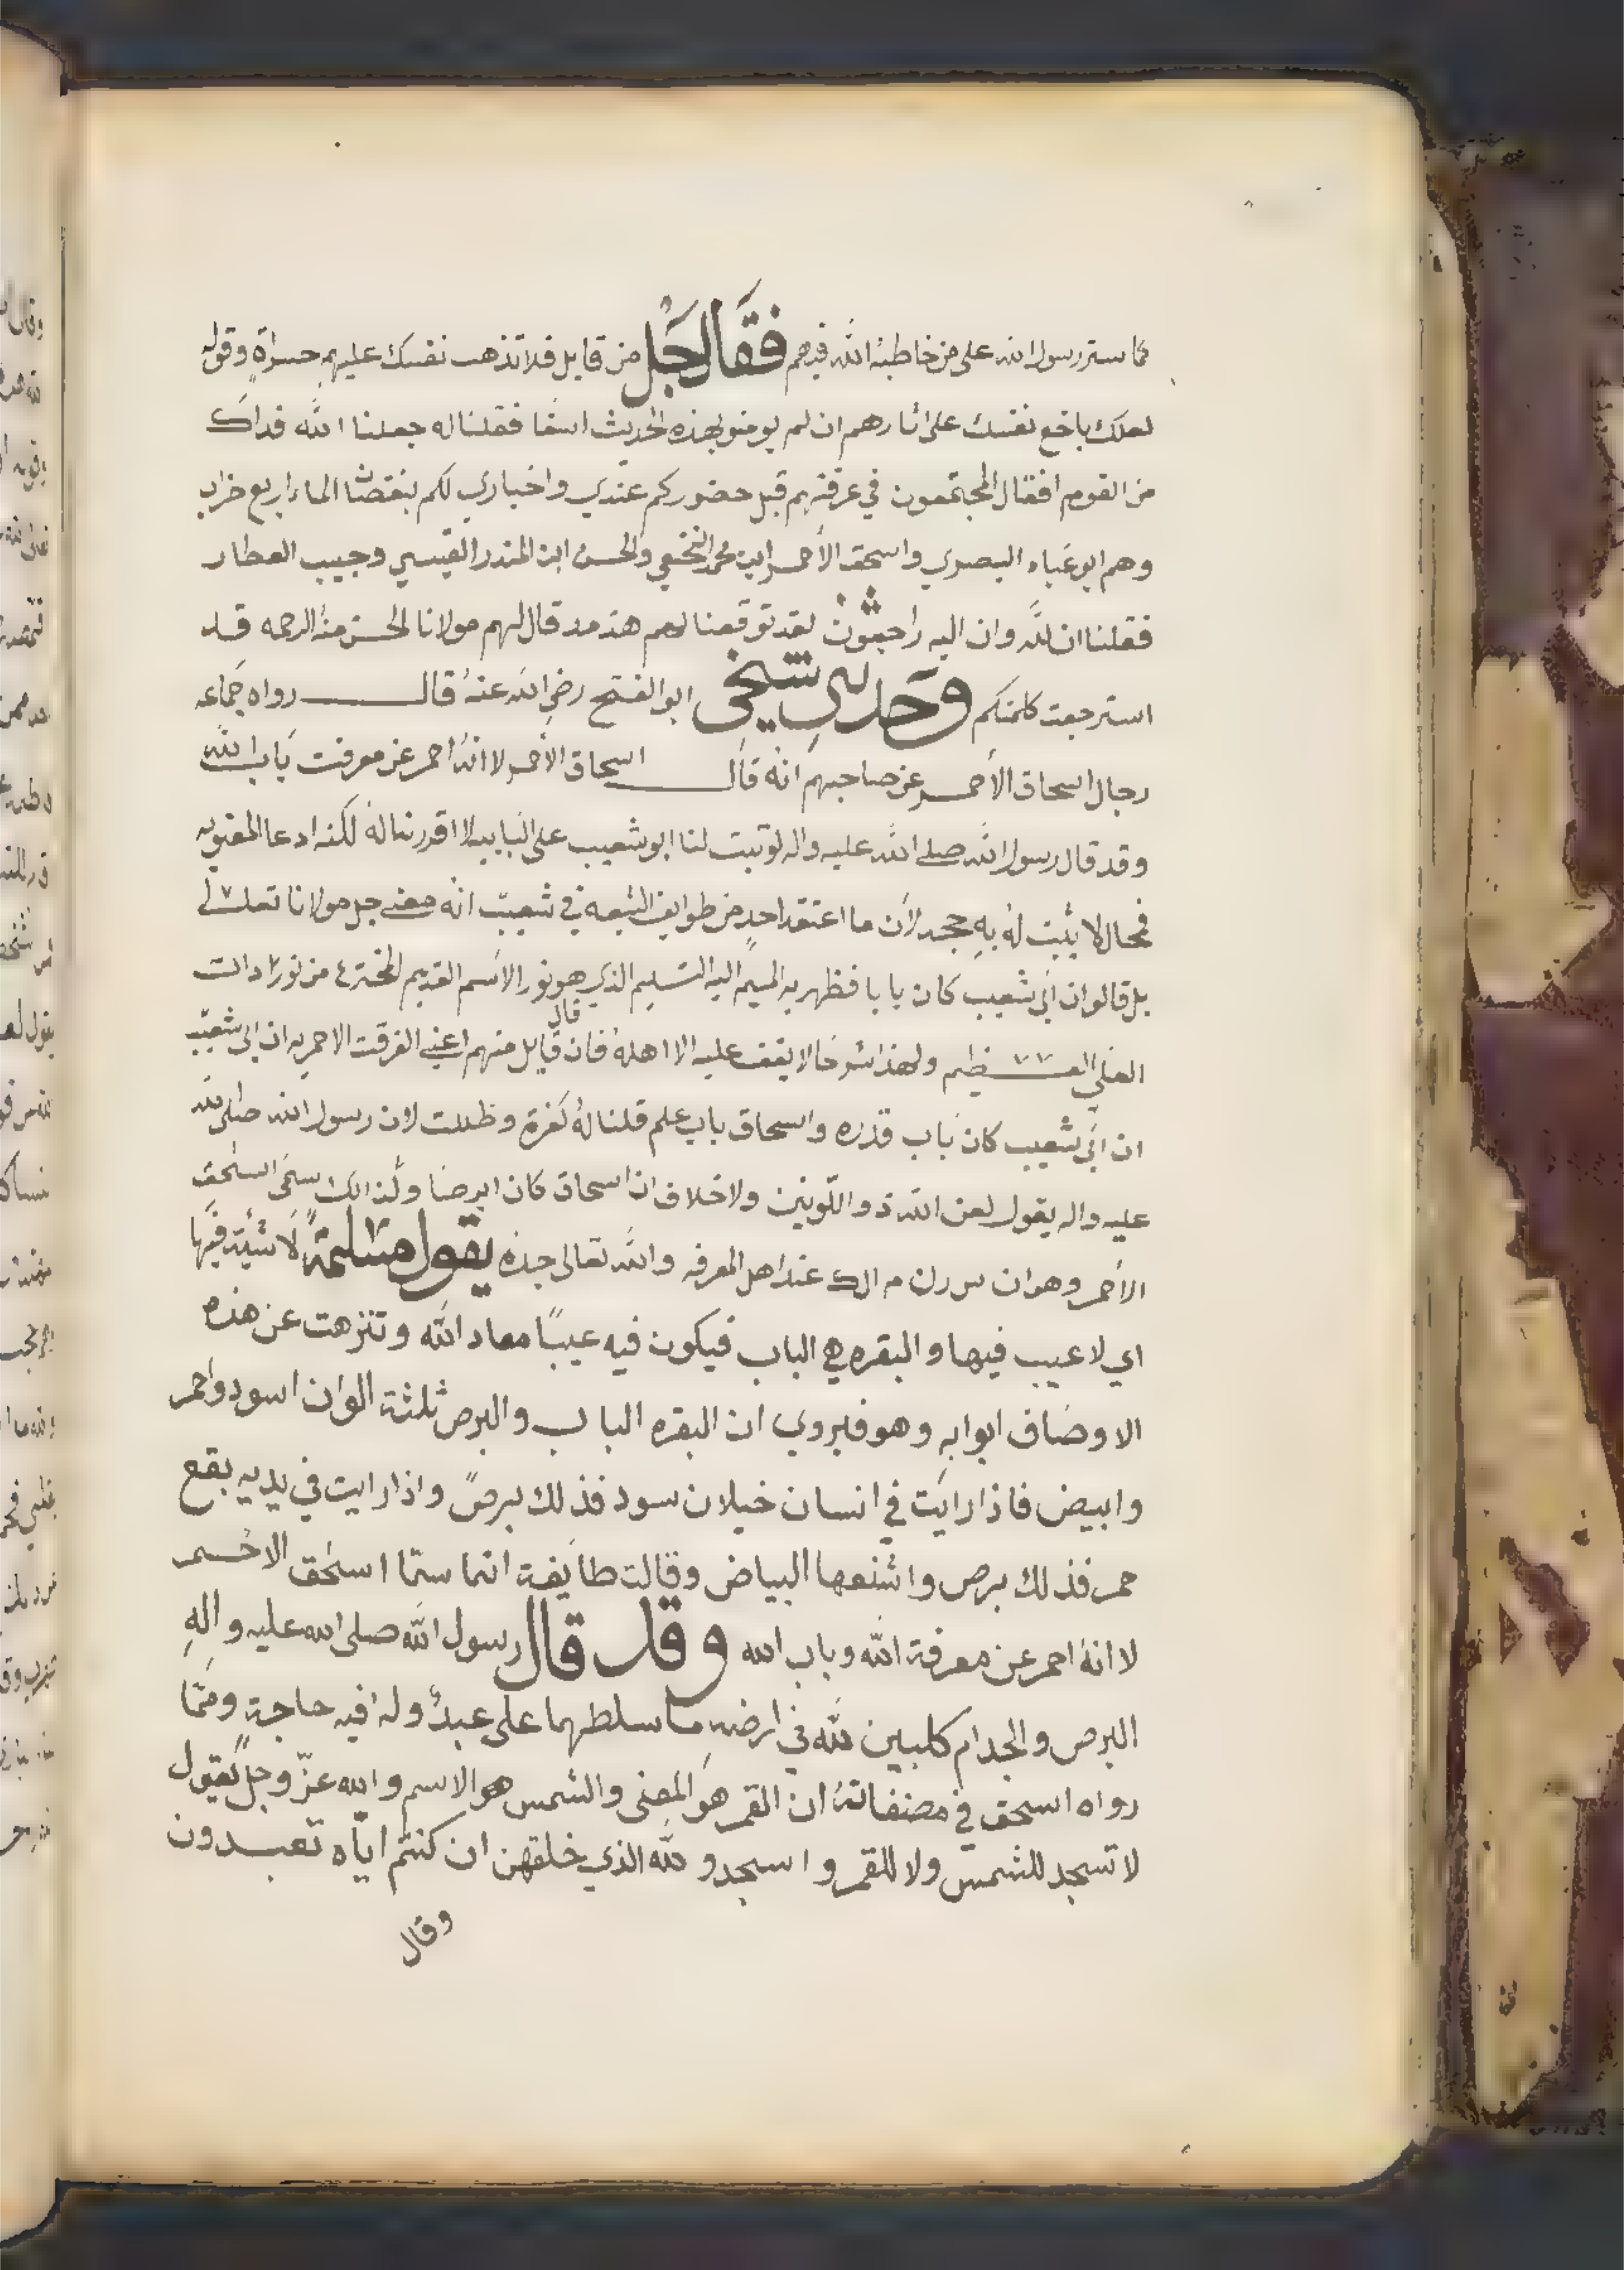 كما ستر رسول الله على من خاطبه الله فيهم فقال جل من قايل فلا تذهب نفسك عليهم حسراة وقوله
لعلك باخع نفسك على اثارهم ان لم يومنو بهذه الحديث اسفا فقلنا له جعلنا الله فداك
من القوم افقال المجتمعون في غرفتهم قبل حضوركم عندي واخباري لكم بنقصان الماء اربع خراب
وهم ابو عباء البصري واسحق الأحمر ابن محمد النخعي والحسن ابن المنذر القيسي وحبيب العطار
فقلنا ان لله وان اليه راجعون لقد توقعنا لهم هذ مد قال لهم مولانا الحسن منه الرحمه قد
استرجعت كلمتكم وحدثني شيخي ابو الفتح رضي الله عنه قال رواه جماعه
رجال اسحاق الأحمر عن صاحبهم انه قال اسحاق الأحمر لا انه احمر عن معرفت باب الله
وقد قال رسول الله صلى الله عليه واله لو تبت لنا ابو شعيب على البابيه لا اقررنا له لكنه ادعا المعنويه
فحال لا يثبت له به جحد لأن ما اعتقد احد من طوايف الشيعه في شعيب انه معنى جل مولانا تعالى
بل قالو ان أبي شعيب كان بابا فظهر به الميم اليه التسليم الذي هو نور الاسم القديم المخترع من نور الدات
العلي العظيم ولهذا شرحا لا يقف عليه الا اهله فان قال قايل منهم اعني الفرقت الاحمريه ان ابى شعيب
ان أبي شعيب كان باب قدره واسحاق باب علم قلنا له كفرة وظللت لان رسول الله صلى الله
عليه واله يقول لعن الله ذو اللونين ولا خلاف ان اسحاق كان ابرصا ولذالك سمى اسحق
الأحمر وهو ان س رلن م الك عند اهل المعرفه والله تعالى جده يقول مسلمة لا شيئة فيها
اي لا عيب فيها والبقره هي الباب فيكون فيه عيبا معاد الله وتنزهت عن هذه
الاوصاف ابوابه وهو فيروي ان البقره الباب والبرص ثلثة الوان اسود واحمر
وابيض فاذا رايت في انسان خيلان سود فذلك برص واذا رايت في يديه بقع
حمر فذلك برص واشنعها البياض وقالت طايفة انما سمّا اسحق الاحمر
لا انه احمر عن معرفة الله وباب الله وقد قال رسول الله صلى الله عليه واله
البرص والجدام كلبين لله في ارضه ما سلطهما على عبد وله فيه حاجة وممّا
رواه اسحق في مصنفاته ان القمر هو المعنى والشمس هو الاسم والله عزّ وجل يقول
لا تسجد للشمس ولا للقمر واسجدو لله الذي خلقهن ان كنتم اياه تعبدون
وقال